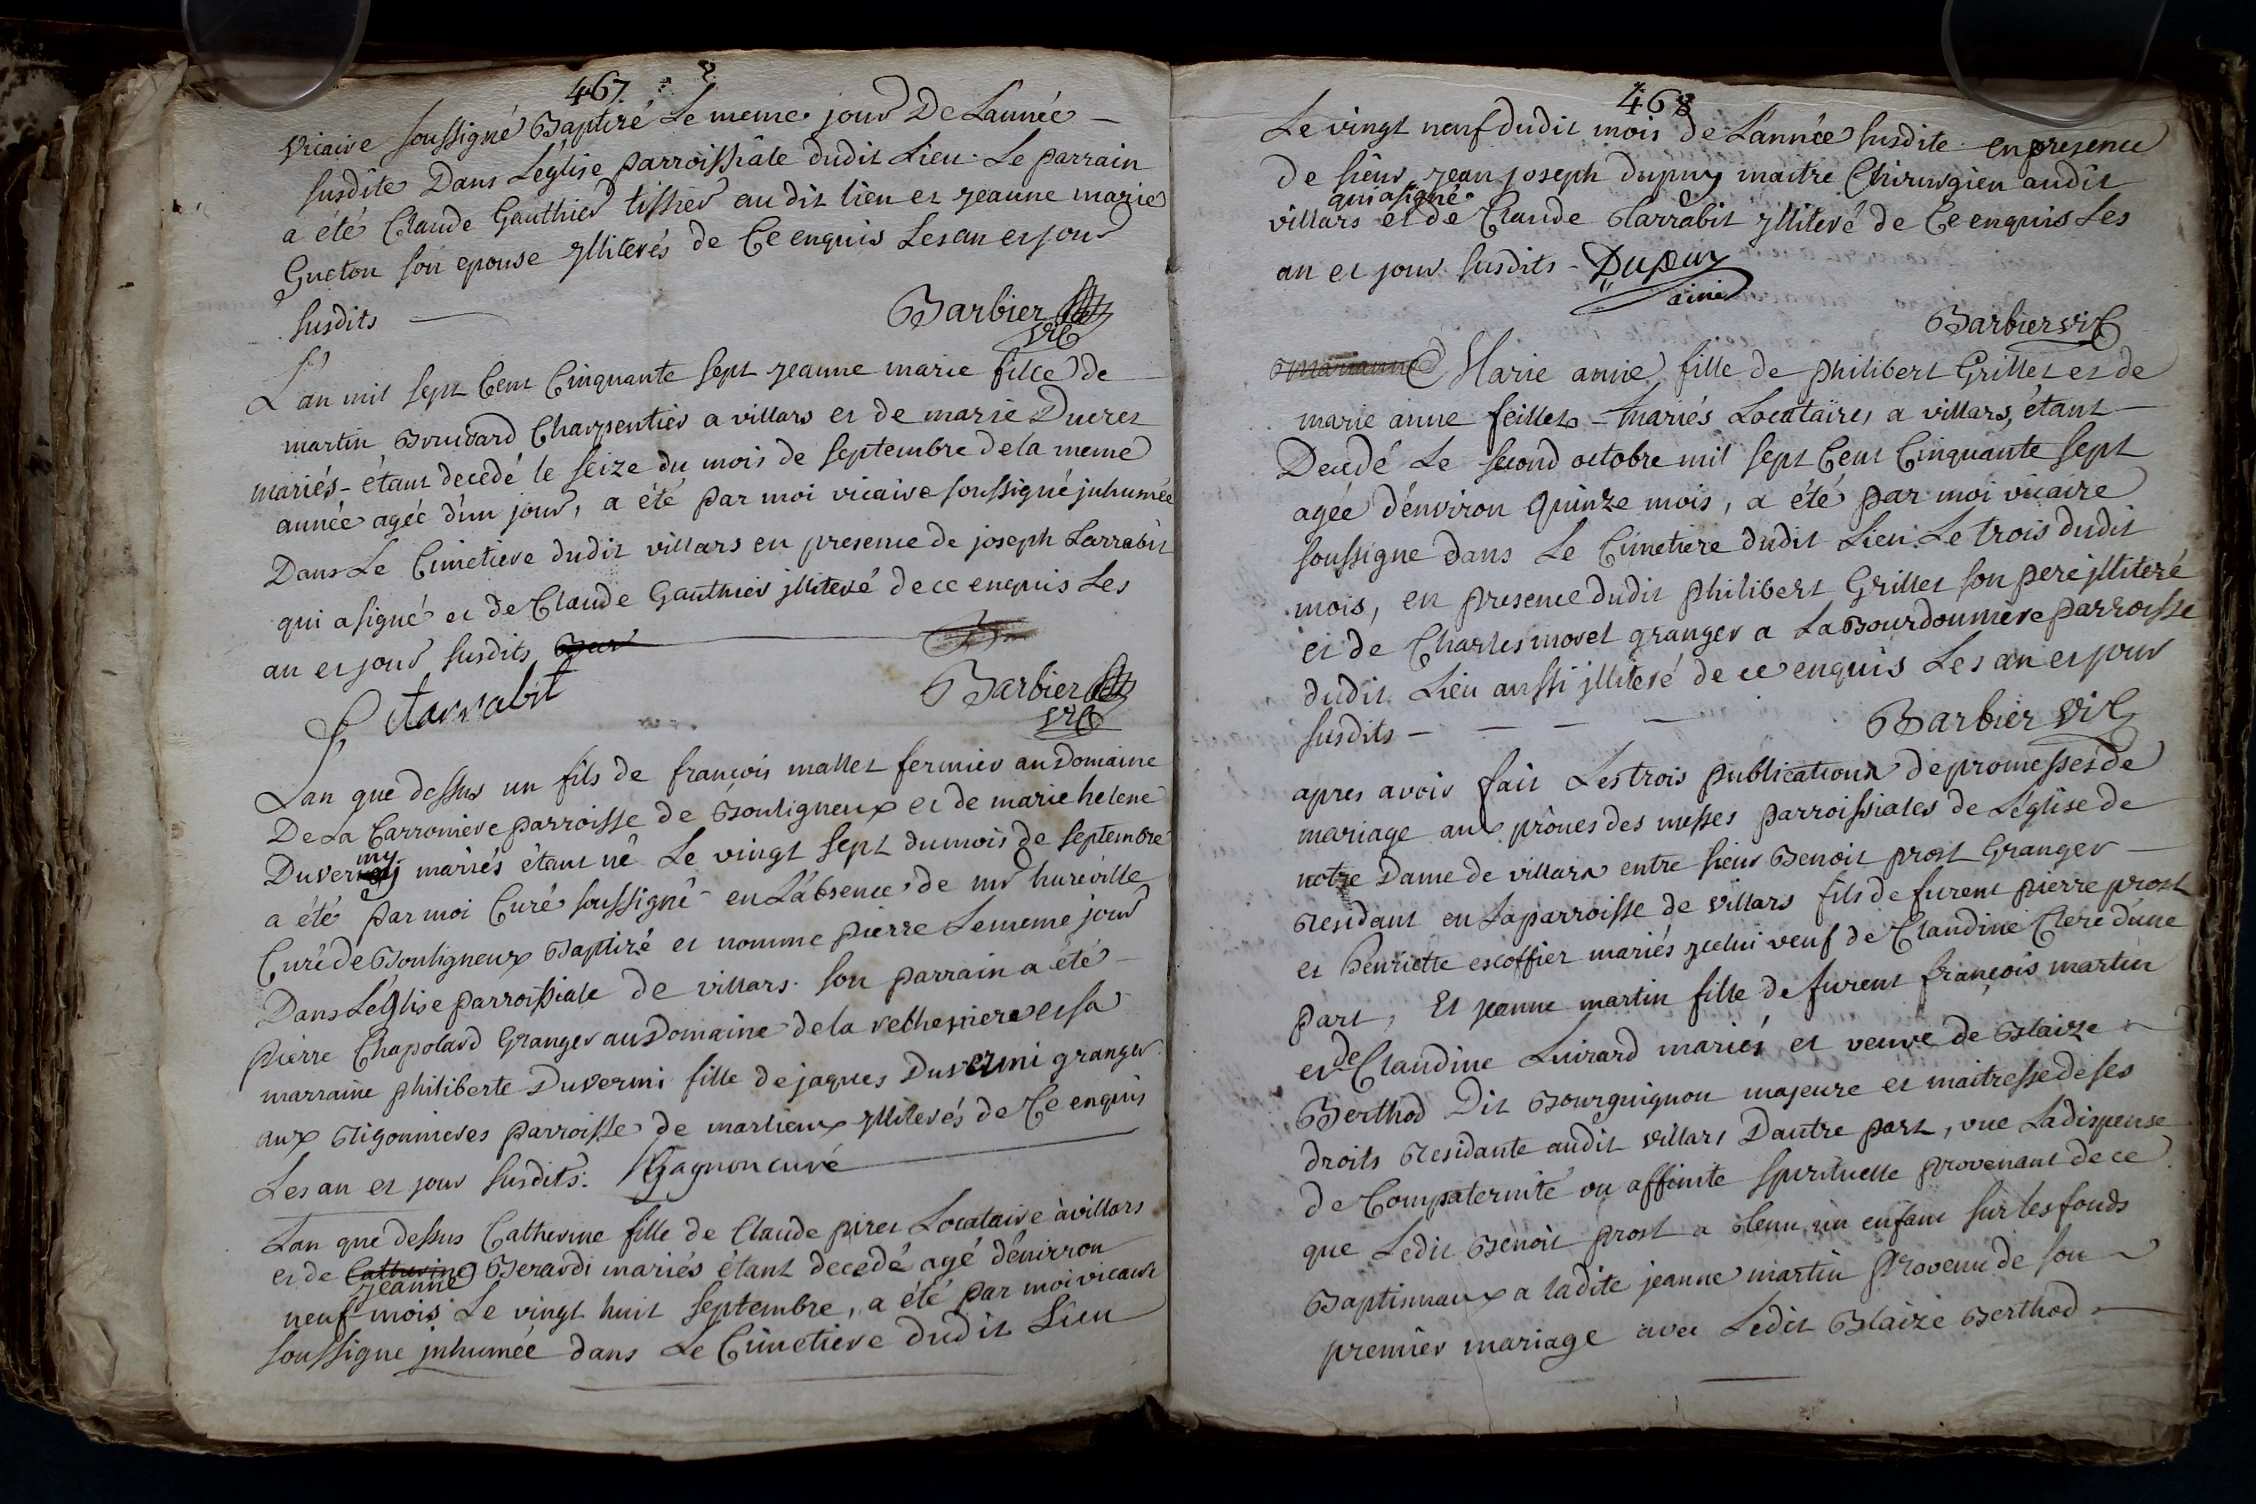 467
vicaire soussigné Baptizé Le meme jour De Lannée
susdite Dans Léglise parroissiâle dudit Lieu. Le parrain
a été Claude Gauthier tissier audit lieu et jeanne marie
Gueton son epouse jlliterés de Ce enquis Les an et jour
susdits
Barbier
vic
L'an mil sept Cent Cinquante sept jeanne marie fille de
martin Brouisard Charpentier a villars et de marie Ducret
mariés - étant decedé le seize du mois de septembre dela meme
année agée d'un jour, a été par moi vicaire soussigné jnhumée
Dans Le Cimetiere dudit villars en presence de joseph Larrabit
qui a signé et de Claude Gauthier jlliteré de ce enquis Les
an et jour susdits
Larrabit
Barbier
vic
Lan que dessus un fils de françois mallet fermier au Domaine
De La Carroniere parroisse de Bouligneux et de marie helene
Duverny mariés étant né Le vingt sept du mois de septembre
a été par moi Curé soussigné en L'absence de mr hureville
Curé de Bouligneux Baptizé et nomme pierre Le meme jour
Dans L'eglise parroissiale de villars. son parrain a été
pierre Chapolard Granger au Domaine de la retheniere et sa
marraine philiberte Duvermi fille de jaques Duvermi granger
aux Rigonnieres parroisse de marlieux jlliterés de Ce enquis
Les an et jour susdits. Gagnon curé
Lan que dessus Catherine fille de Claude piret Locataire à villars
et de Catherine Berardi mariés étant decedé agé d'enirron
jeanne
neuf mois Le vingt huit septembre, a été par moi vicaire
soussigne jnhumée dans Le Cimetiere dudit Lieu
468
Le vingt neuf dudit mois de L'année susdite en presence
de sieur jean joseph dupuy maitre Chirurgien audit
qui a signé
villars et de Claude Larrabit jlliteré de Ce enquis Les
an et jour susdits - Dupuy
ainé
Barbier vic
Marianne Marie anne fille de philibert Grillet et de
marie anne feillet mariés Locataires a villars, étant
Decedé Le second octobre mil sept Cent Cinquante sept
agée d'environ quinze mois, a été par moi vicaire
soussigne dans Le Cimetiere dudit Lieu. Le trois dudit
mois, en presence dudit philibert Grillet son pere jlliteré
et de Charles morel granger a La Bourdonniere parroisse
dudit Lieu aussi jlliteré de ce enquis Les an et jour
susdits
Barbier vic
apres avoir fait Les trois publications de promesses de
mariage aux prônes des messes parroissiales de L'eglise de
notre Dame de villars entre sieur Benoit prost Granger
Residant en La parroisse de villars fils de furent pierre prost
et henriette escoffier mariés jcelui veuf de Claudine Clere d'une
part, Et jeanne martin fille de furent françois martin
et de Claudine Luirard mariés et veuve de Blaize
Berthod Dit Bourguignon majeure et maitresse de ses
droits Residante audit villars Dautre part, vue La dispense
de Compaternité ou affinité spirituelle provenant de ce
que Ledit Benoit prost a tenu un enfant sur les fonds
Baptismaux a ladite jeanne martin Provenu de son
premier mariage avec Ledit Blaize Berthod